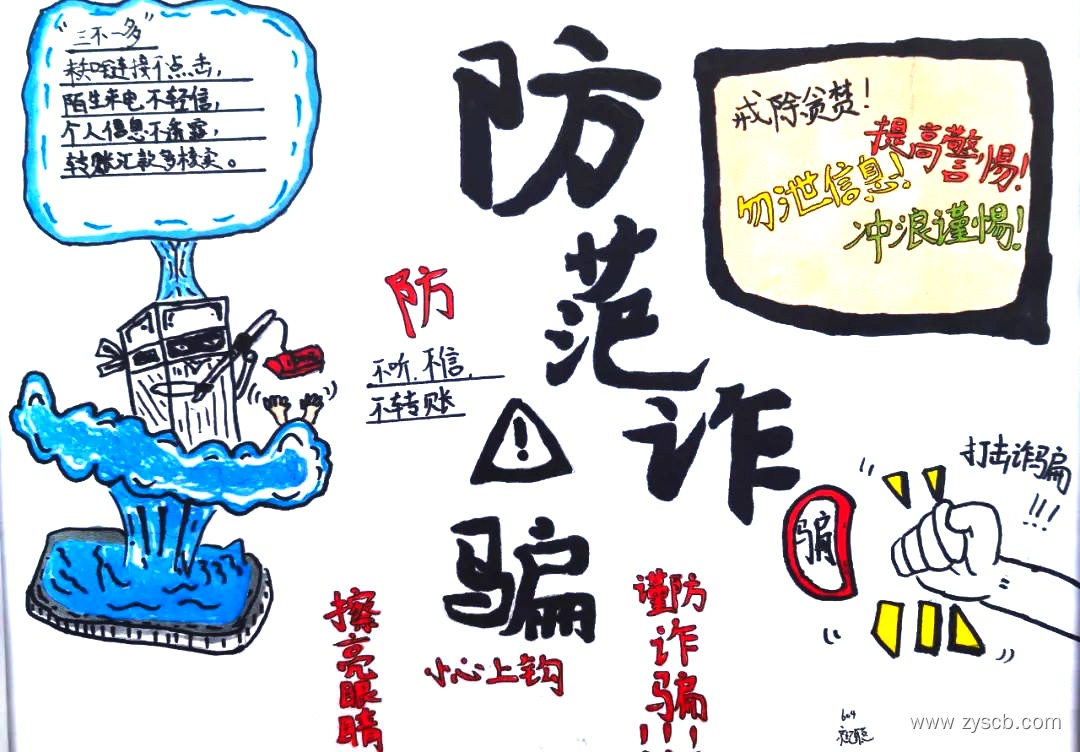 "三不一多"
链接不点击，
陌生来电不轻信，
个人信息不透露，
转账汇款多核实。
防范诈骗
戒除贪婪！
提高警惕！
勿泄信息！
冲浪谨惕！
防
不听.不信.
不转账
!
打击诈骗
!!!
骗
擦亮眼睛
小心上钩
谨防诈骗!!!!
604
www.zyscb.com